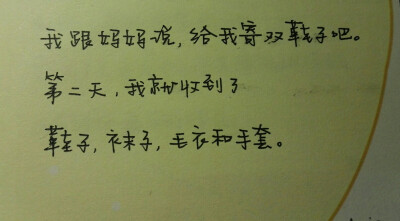 我跟妈妈说，给我寄双鞋子吧。
第二天，我就收到了
鞋子，袜子，毛衣和手套。